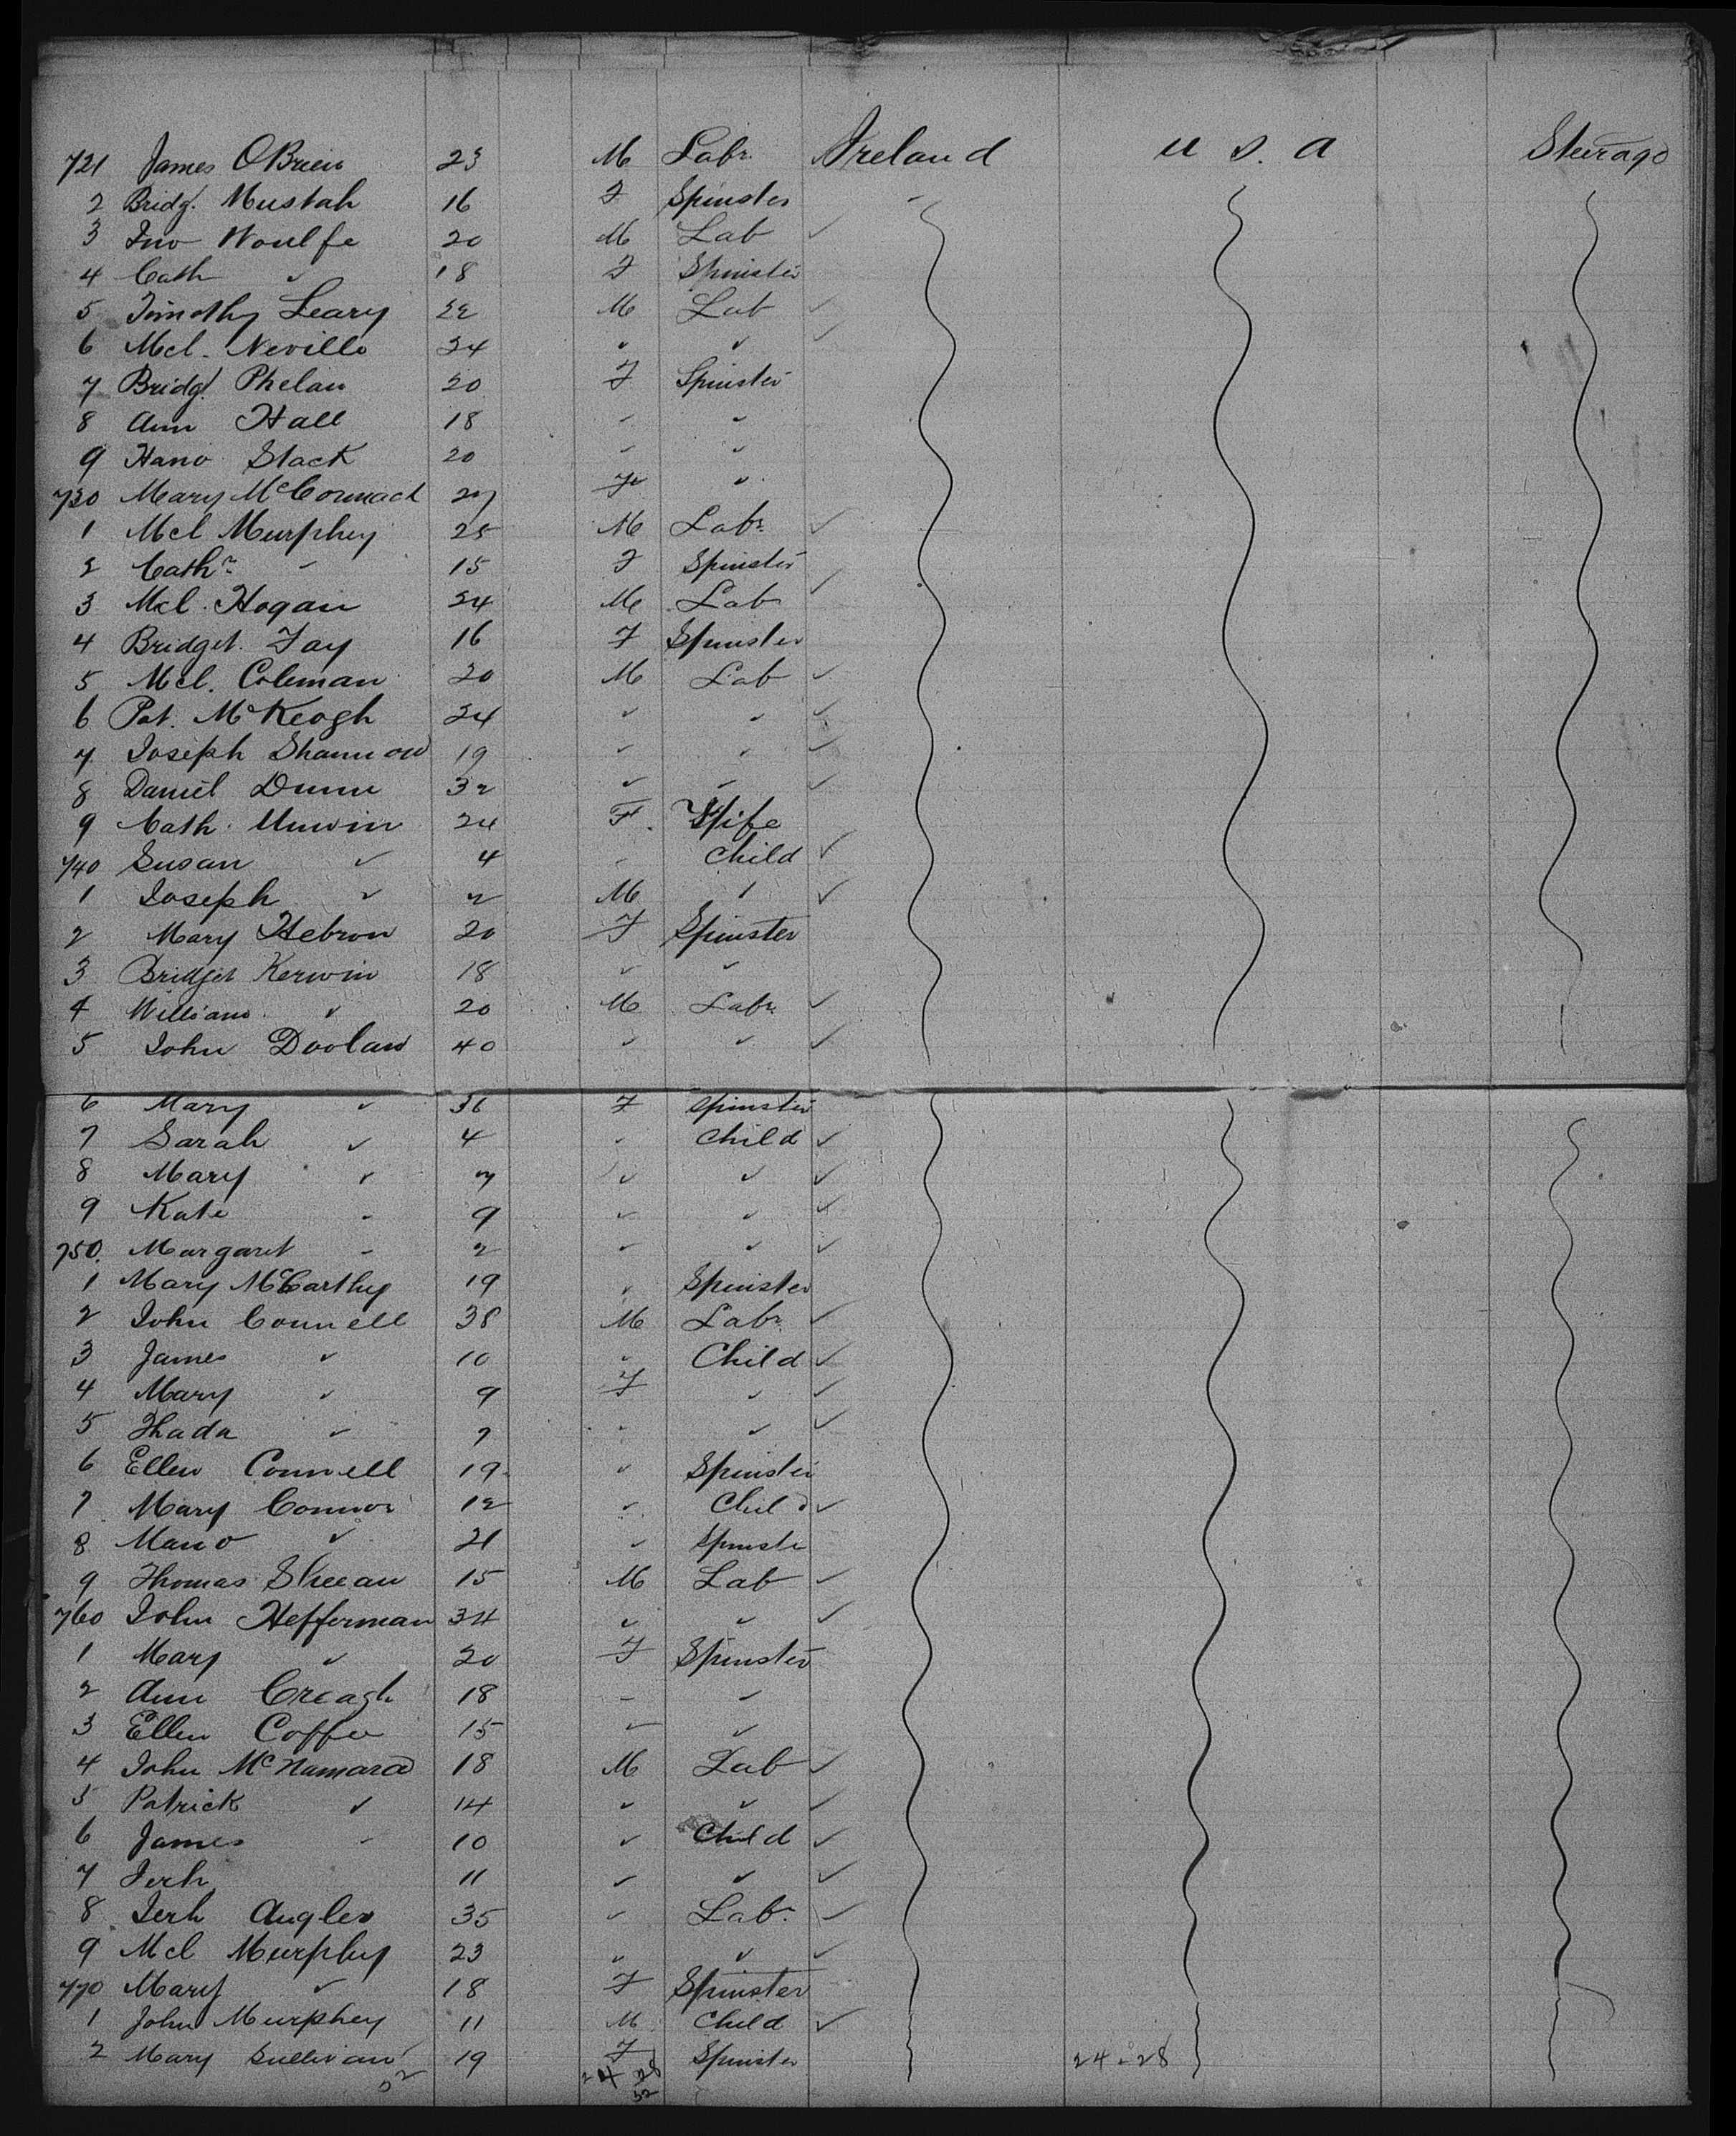 721 James OBrien 23 M Labr. Ireland U. S. A Steerage
2 Bridgt. Mustah 16 F Spinster
3 Jno Woulfe 20 M Lab ✓
4 Cath " 18 F Spinster
5 Timothy Leary 22 M Lab ✓
6 Mcl. Neville 24 " " ✓
7 Bridgt. Phelan 20 F Spinster
8 Ann Hall 18 " "
9 Hano Stack 20 " "
730 Mary McCormack 27 F "
1 Mcl Murphey 25 M Labr. ✓
2 Cathr. " 15 F Spinster
3 Mcl. Hogan 24 M Lab ✓
4 Bridget. Fay 16 F Spinster
5 Mcl. Coleman 20 M Lab ✓
6 Pat. McKeogh 24 " " ✓
7 Joseph Shannon 19 " " ✓
8 Daniel Dunn 32 " " ✓
9 Cath. Unwin 24 F. Wife
740 Susan " 4 " Child ✓
1 Joseph " 2 M " ✓
2 Mary Hebron 20 F Spinster
3 Bridget Kerwin 18 " "
4 William " 20 M Labr ✓
5 John Doolan 40 " " ✓
6 Mary " 36 F Spinster
7 Sarah " 4 " Child ✓
8 Mary " 7 " " ✓
9 Kate " 9 " " ✓
750. Margaret " 2 " " ✓
1 Mary McCarthy 19 " Spinster
2 John Connell 38 M Labr. ✓
3 James " 10 " Child ✓
4 Mary " 9 F " ✓
5 Thada " 7 " " ✓
6 Ellen Connell 19 " Spinster
7 Mary Connor 12 " Child ✓
8 Mano " 21 " Spinste
9 Thomas Sheean 15 M Lab ✓
760 John Hefferman 34 " " ✓
1 Mary " 20 F Spinster
2 Ann Creagh 18 " "
3 Ellen Coffee 15 " "
4 John McNamara 18 M Lab ✓
5 Patrick " 14 " " ✓
6 James " 10 " Child ✓
7 Jerh 11 " " ✓
8 Jerh Angles 35 " Labr. ✓
9 Mcl Murphy 23 " " ✓
770 Mary " 18 F Spinster
1 John Murphey 11 M Child ✓
2 Mary Sullivan 19 F Spinster 24-28
52 24 28
52